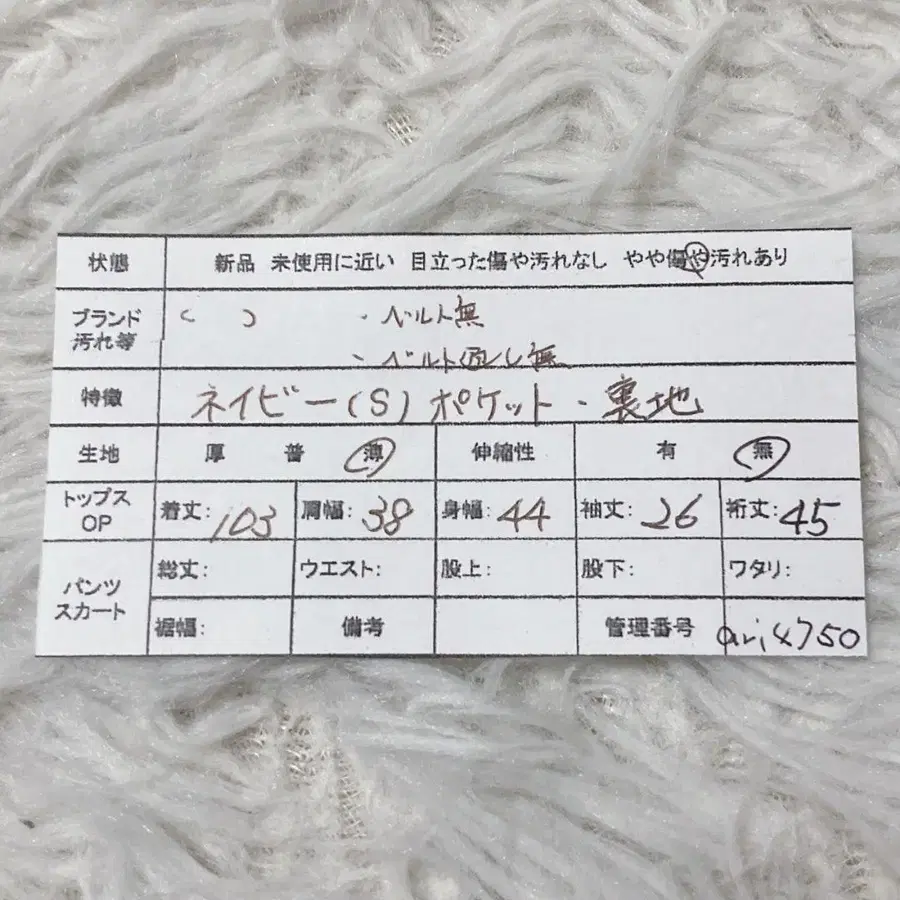 状態 新品 未使用に近い 目立った傷や汚れなし やや傷や汚れあり
ブランド 汚れ等 ( ) ・ベルト無
・ベルト通し無
特徴 ネイビー(S) ポケット・裏地
生地 厚 普 薄 伸縮性 有 無
トップス OP 着丈: 103 肩幅: 38 身幅: 44 袖丈: 26 裄丈: 45
パンツ スカート 総丈: ウエスト: 股上: 股下: ワタリ:
裾幅: 備考 管理番号 ari4750